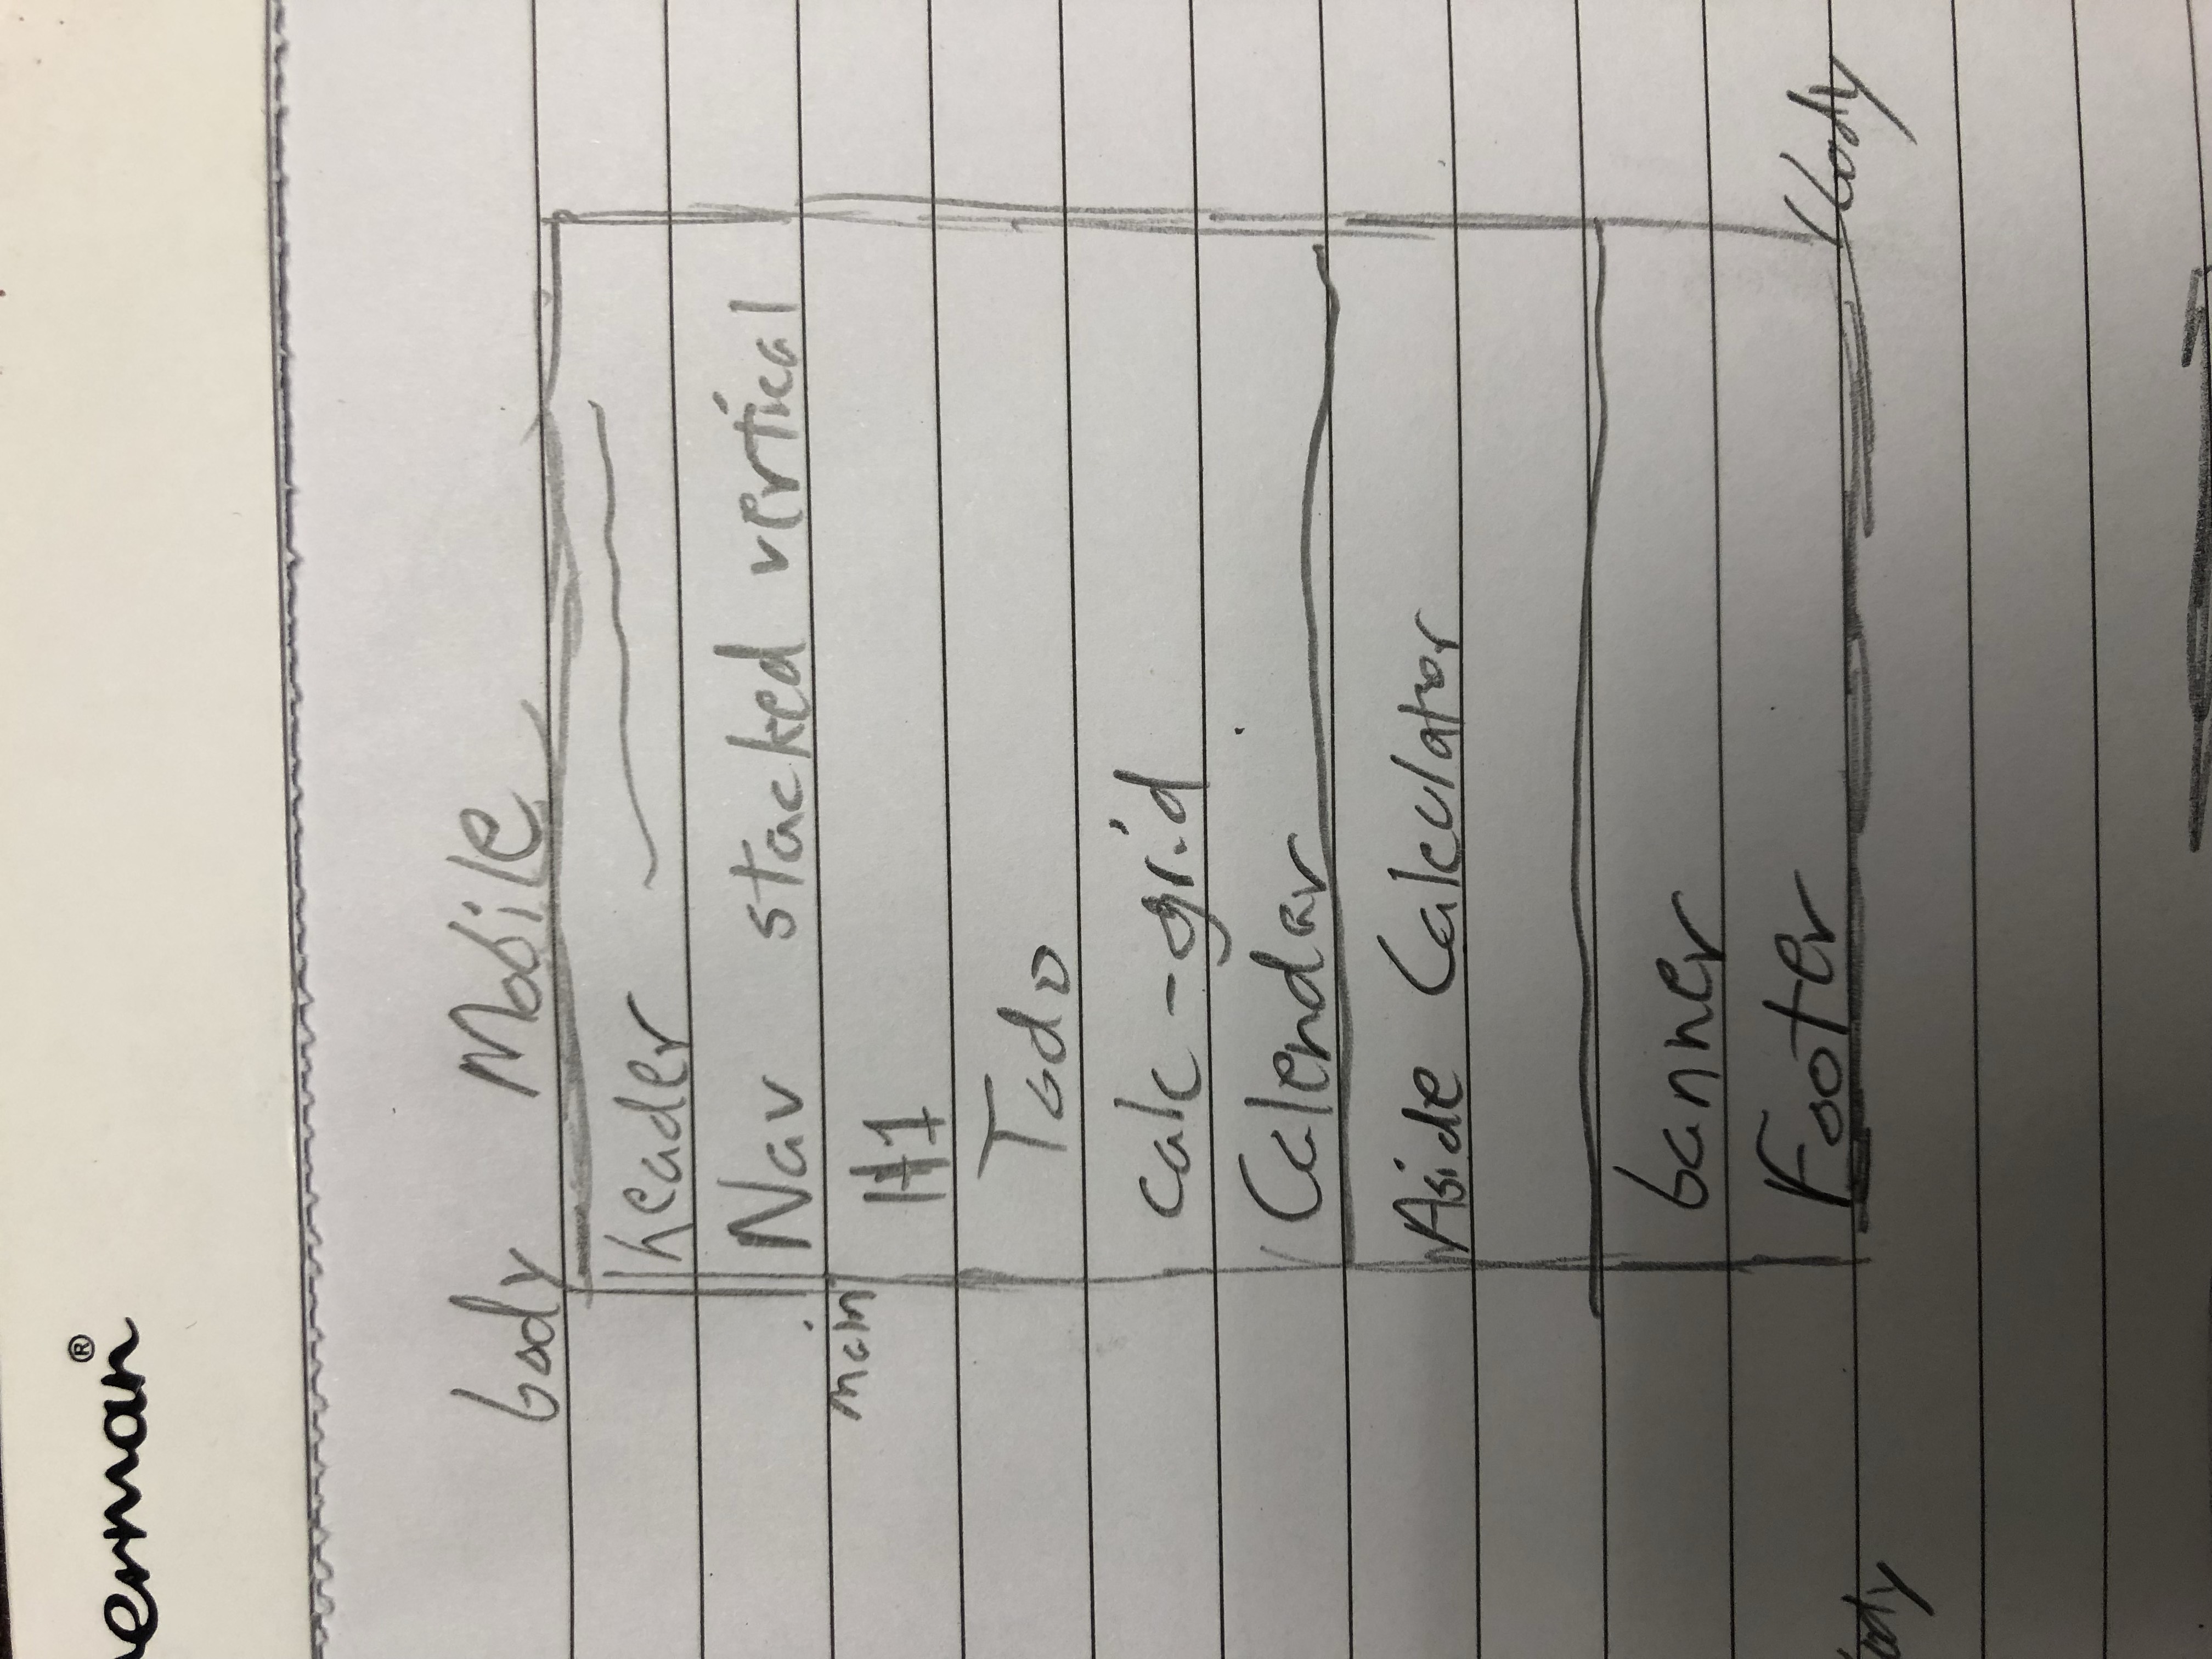 erman®
body Mobile
header
Nav stacked vertical
main
H1
Todo
calc-grid
Calendar
Aside Calculator
banner
Footer
body